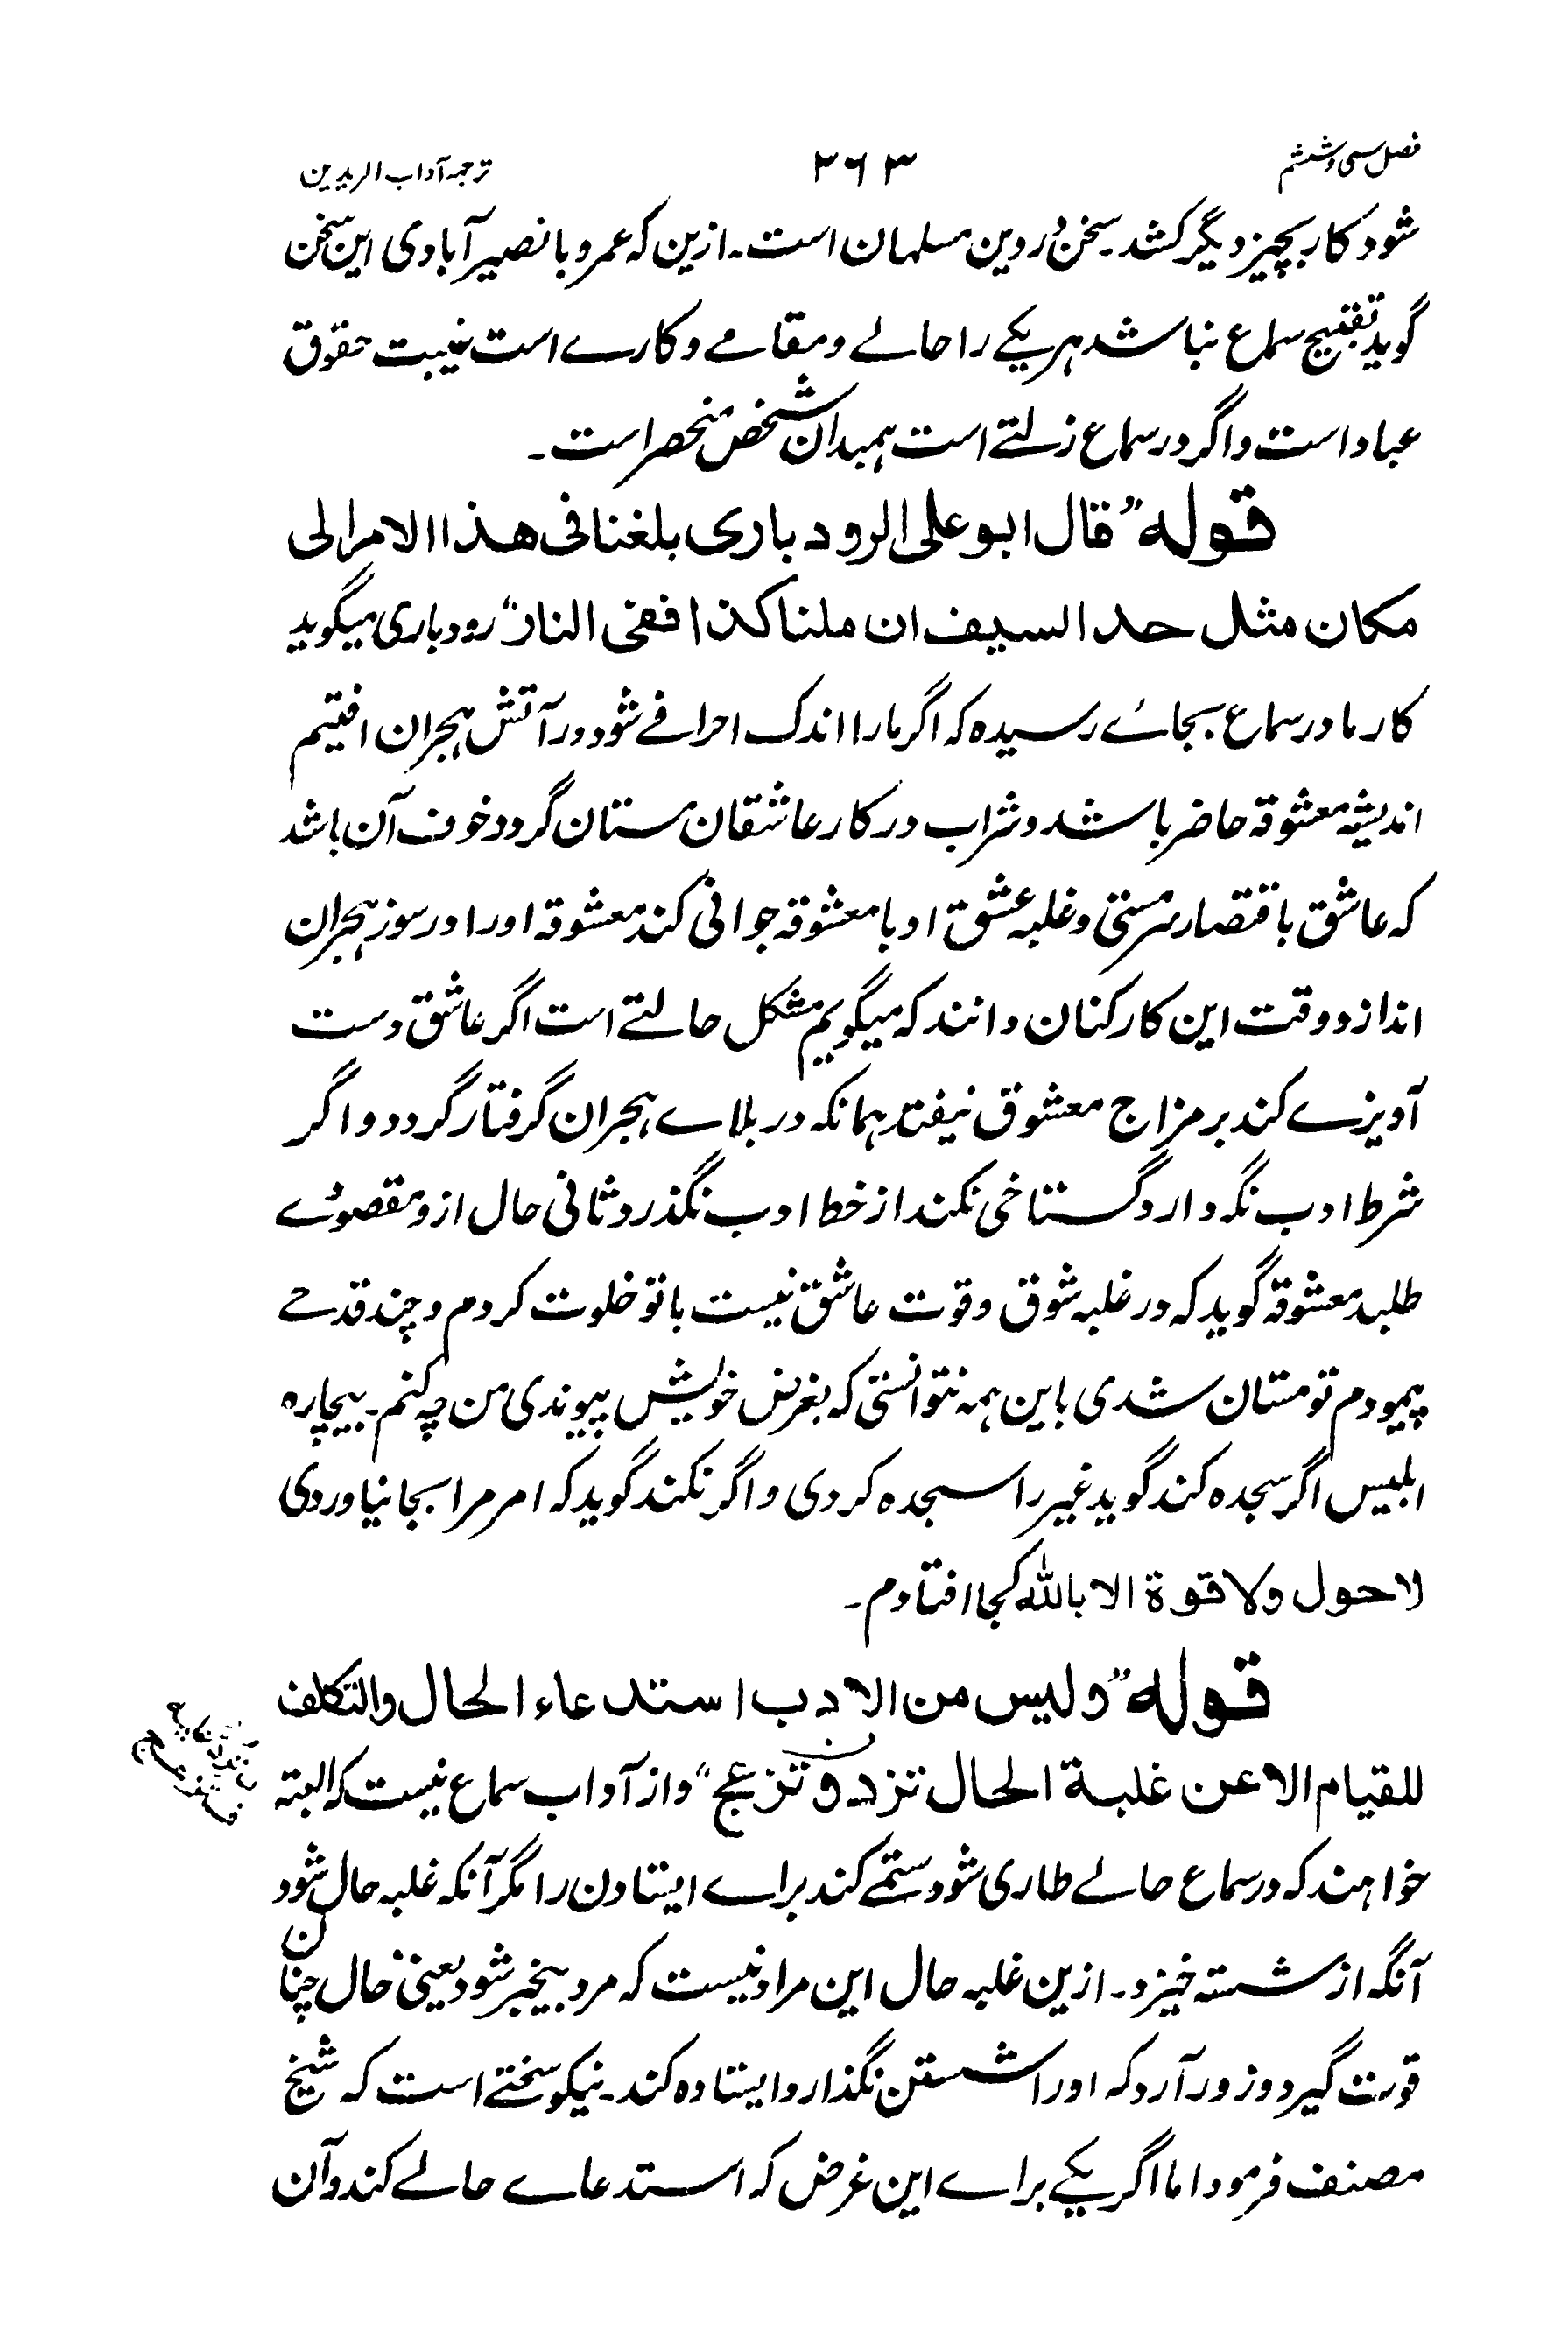 فصل سی و ششم ۲۶۳ ترجمہ آداب المریدین
شود کار بچیز دیگر کشد۔ سخن در دین مسلمان است۔ ازین کہ عمرو با نصیر آبادی این سخن
گوید تقبیح سماع نباشد ہر یکے را حالے و مقامے و کارے است غیبت حقوق
عباد است و اگر در سماع زلتے است ہمبدان شخص منحصر است۔
قوله "قال ابو علی الرودباری بلغنا فی هذا الامر الی
مکان مثل حد السیف ان ملنا کذا ففی النار" رودباری میگوید
کار ما در سماع بجائے رسیدہ کہ اگر ما را اندک احرافے شود در آتش ہجران افتیم
اندیشہ معشوقہ حاضر باشد و شراب در کار عاشقان مستان گردد خوف آن باشد
کہ عاشق باقتصار سرمستی و غلبہ عشق او با معشوقہ جوانی کند معشوقہ اورا در سوز ہجران
اندازد و وقت این کار کنان دانند کہ میگویم مشکل حالتے است اگر عاشق دست
آویزے کند بر مزاج معشوق نیفتد ہمانکہ در بلاے ہجران گرفتار گردد و اگر
شرط ادب نگہ دارد گستاخی نکند از خط ادب نگذرد ثانی حال ازو مقصودے
طلبد معشوقہ گوید کہ در غلبہ شوق و قوت عاشق نیست با تو خلوت کردم و چند قدحے
پیمودم تو مستان شدی با این ہمہ نتوانستی کہ بغرض خویش پیوندی من چہ کنم۔ بیچارہ
ابلیس اگر سجدہ کند گوید غیر را سجدہ کردی و اگر نکند گوید کہ امر مرا بجا نیاوردی
لا حول ولا قوة الا بالله کجا افتادم۔
قوله "ولیس من الادب استدعاء الحال والتکلف
للقیام الا عن غلبة الحال تزد و تزعج" و از آداب سماع نیست کہ البتہ
خواہند کہ در سماع حالے طاری شود ستمے کند براے ایستادن را مگر آنکہ غلبہ حال شود
آنگہ از شستہ خیزد۔ ازین غلبہ حال این مراد نیست کہ مرد بیخبر شود یعنی حال چنان
قوت گیرد و زور آرد کہ اورا شستن نگذارد ایستادہ کند۔ نیکو سخنے است کہ شیخ
مصنف فرمود اما اگر یکے براے این غرض کہ استدعاے حالے کند و آن